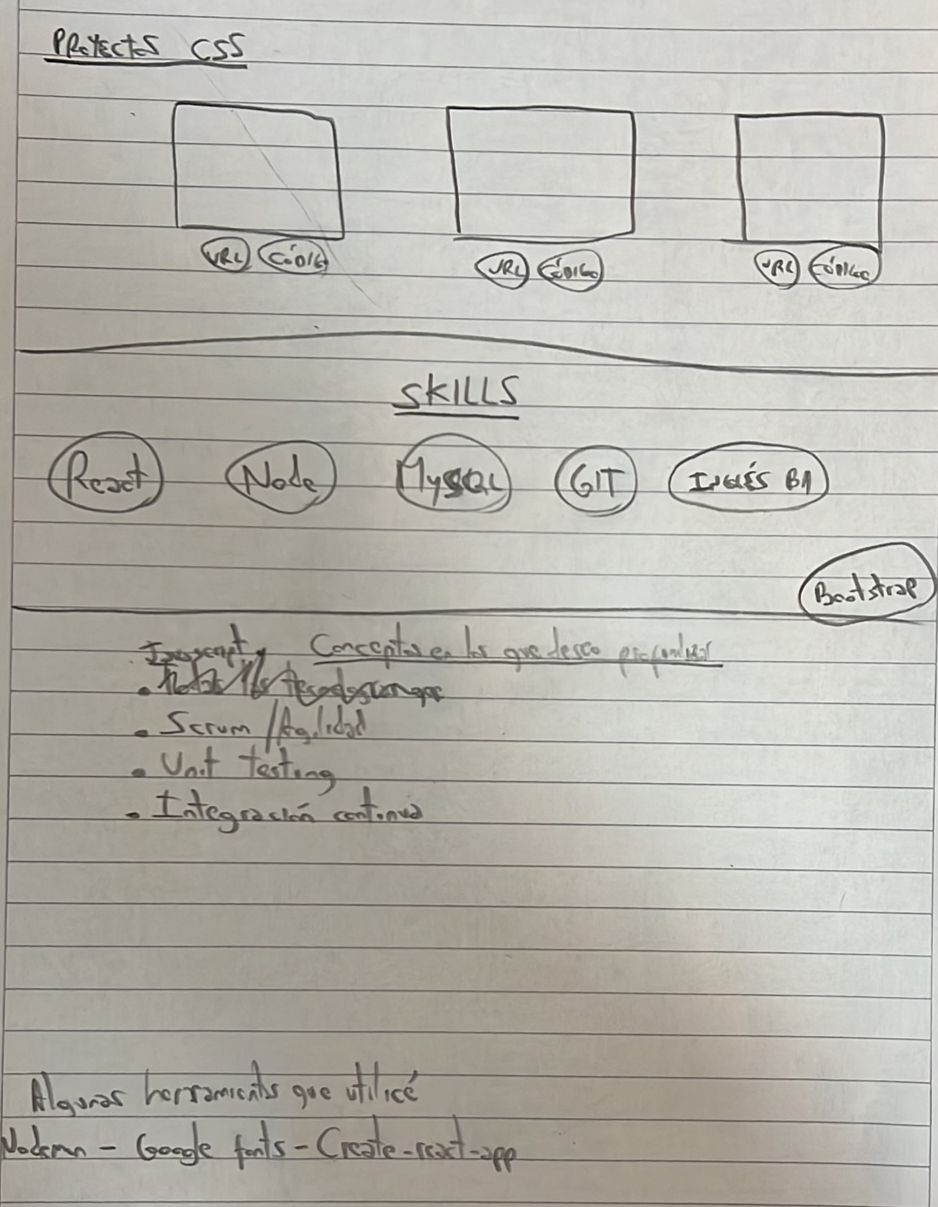 PROYECTOS CSS
URL CÓDIGO URL CÓDIGO URL CÓDIGO
SKILLS
React Node MySQL GIT INGLÉS B1
Bootstrap
Conceptos en los que deseo profundizar
• Scrum / Agilidad
• Unit testing
• Integración continua
Algunas herramientas que utilicé
Nodemon - Google fonts - Create-react-app